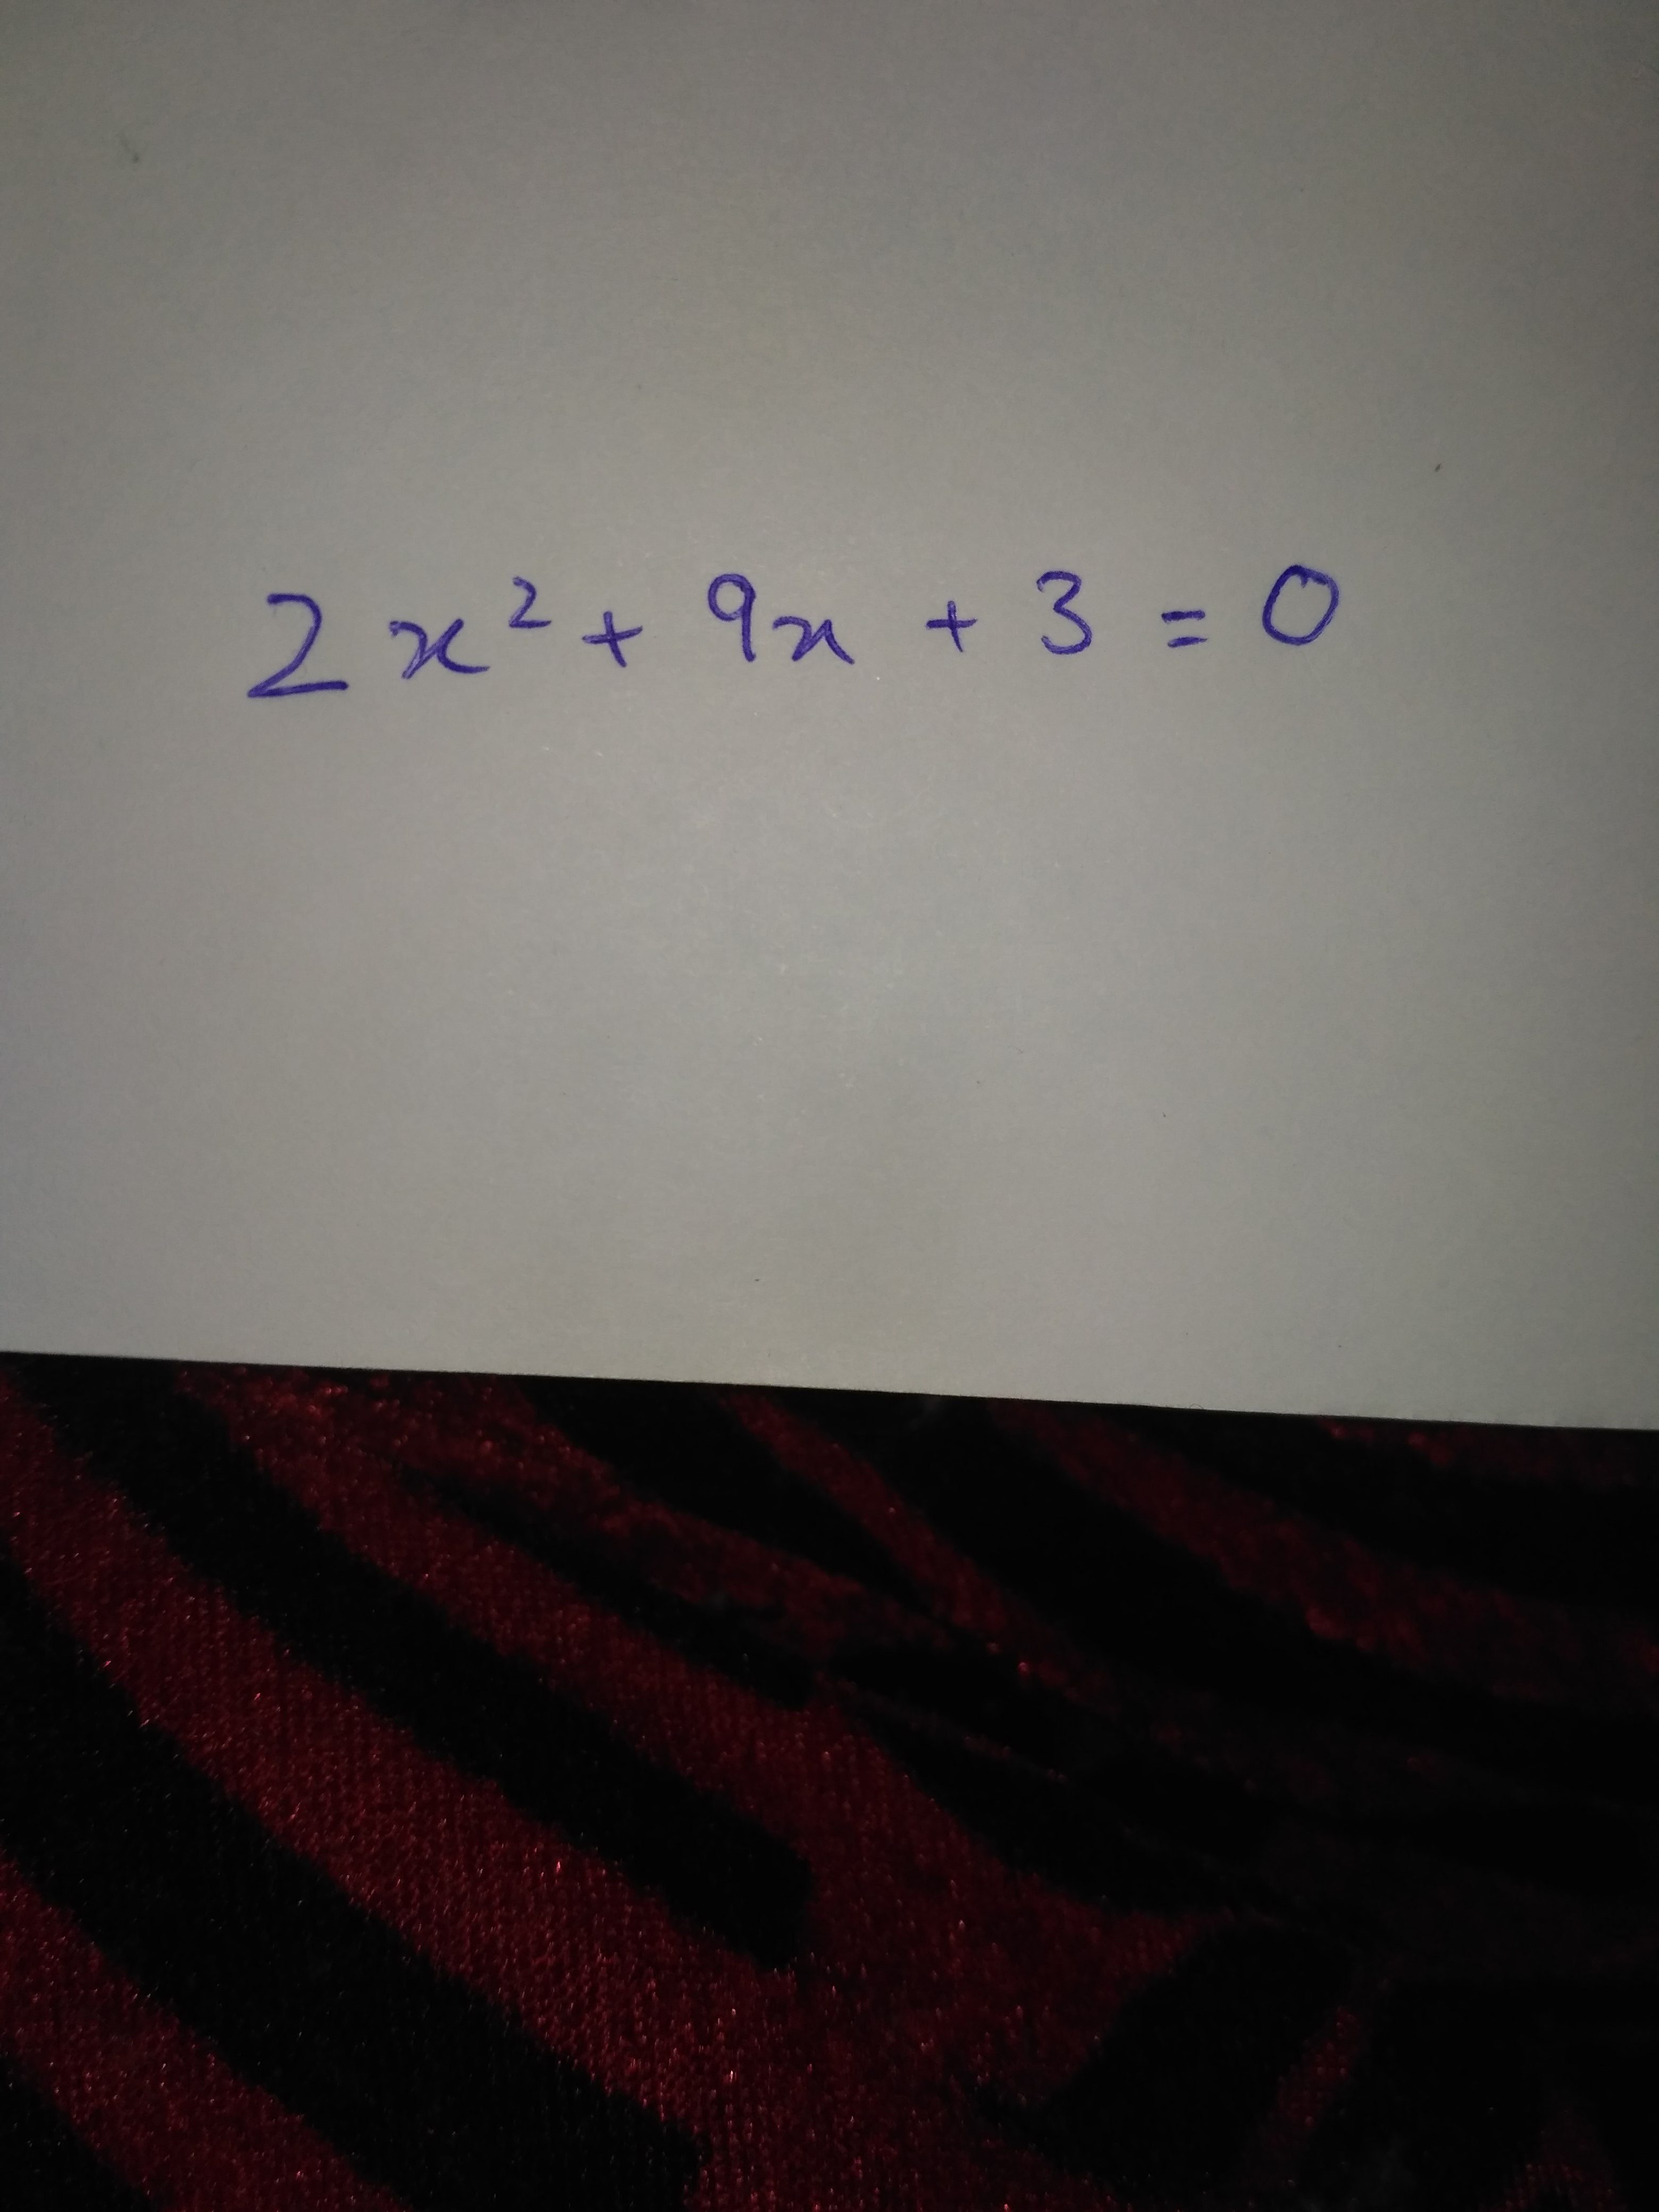 2x² + 9x + 3 = 0